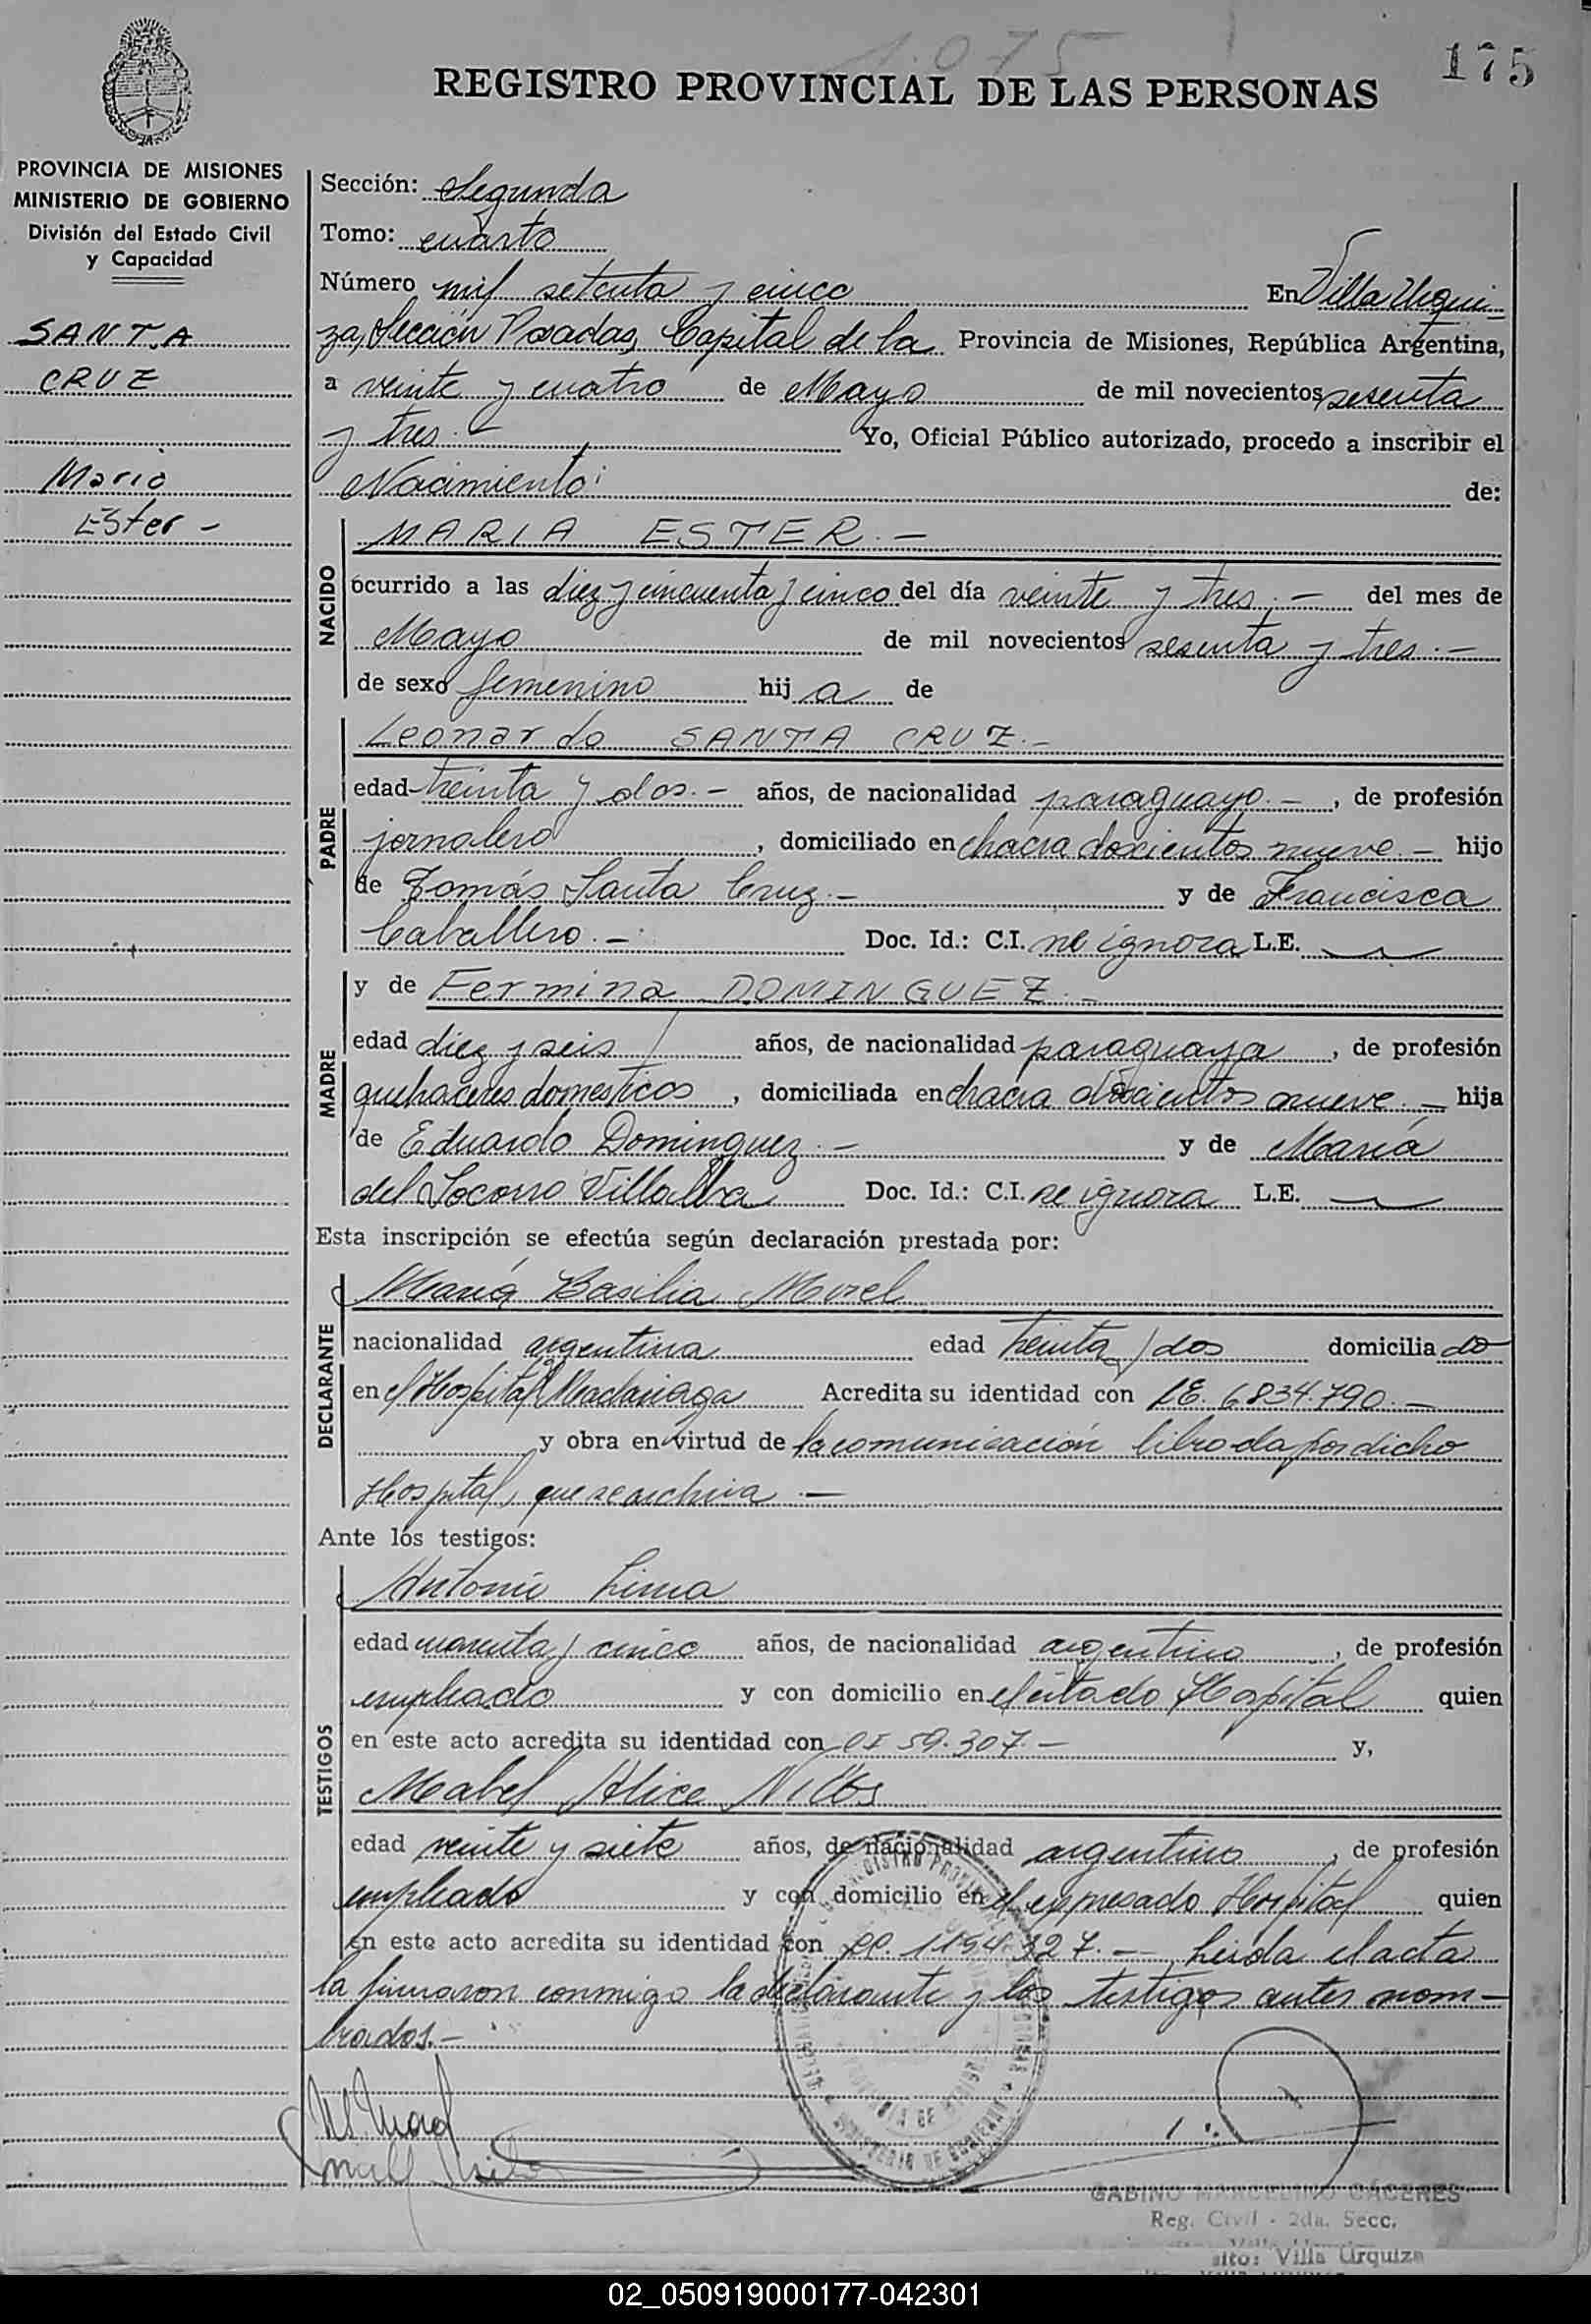 1.075
175
REGISTRO PROVINCIAL DE LAS PERSONAS
PROVINCIA DE MISIONES
MINISTERIO DE GOBIERNO
División del Estado Civil
y Capacidad
SANTA
CRUZ
María
Ester -
Sección: Segunda
Tomo: cuarto
Número mil setenta y cinco En Villa Urqui-
za, Sección Posadas, Capital de la Provincia de Misiones, República Argentina,
a veinte y cuatro de Mayo de mil novecientos sesenta
y tres.- Yo, Oficial Público autorizado, procedo a inscribir el
Nacimiento: de:
NACIDO
MARIA ESTER.-
ocurrido a las diez y cincuenta y cinco del día veinte y tres.- del mes de
Mayo de mil novecientos sesenta y tres.-
de sexo femenino hij a de
PADRE
Leonardo SANTA CRUZ.-
edad treinta y dos.- años, de nacionalidad paraguayo.-, de profesión
jornalero, domiciliado en chacra doscientos nueve.- hijo
de Tomás Santa Cruz.- y de Francisca
Caballero.- Doc. Id.: C.I. se ignora L.E.
MADRE
y de Fermina DOMINGUEZ.-
edad diez y seis años, de nacionalidad paraguaya, de profesión
quehaceres domesticos, domiciliada en chacra doscientos nueve.- hija
de Eduardo Dominguez.- y de María
del Socorro Villalba Doc. Id.: C.I. se ignora L.E.
Esta inscripción se efectúa según declaración prestada por:
DECLARANTE
María Basilia Morel
nacionalidad argentina edad treinta y dos domicilia do
en el Hospital Madariaga Acredita su identidad con LE. 6.834.790.-
y obra en virtud de la comunicación librada por dicho
Hospital, que se archiva.-
Ante los testigos:
TESTIGOS
Antonio Lima
edad cuarenta y cinco años, de nacionalidad argentino, de profesión
empleado y con domicilio en el citado Hospital quien
en este acto acredita su identidad con CI 59.307.- y,
Mabel Alice
edad veinte y siete años, de nacionalidad argentino, de profesión
empleado y con domicilio en el expresado Hospital quien
en este acto acredita su identidad con Leida el acta
la firmaron conmigo la declarante y los testigos antes nom-
brados.-
GABINO MARCELINO CÁCERES
Reg. Civil - 2da. Secc.
sito: Villa Urquiza
02_050919000177-042301